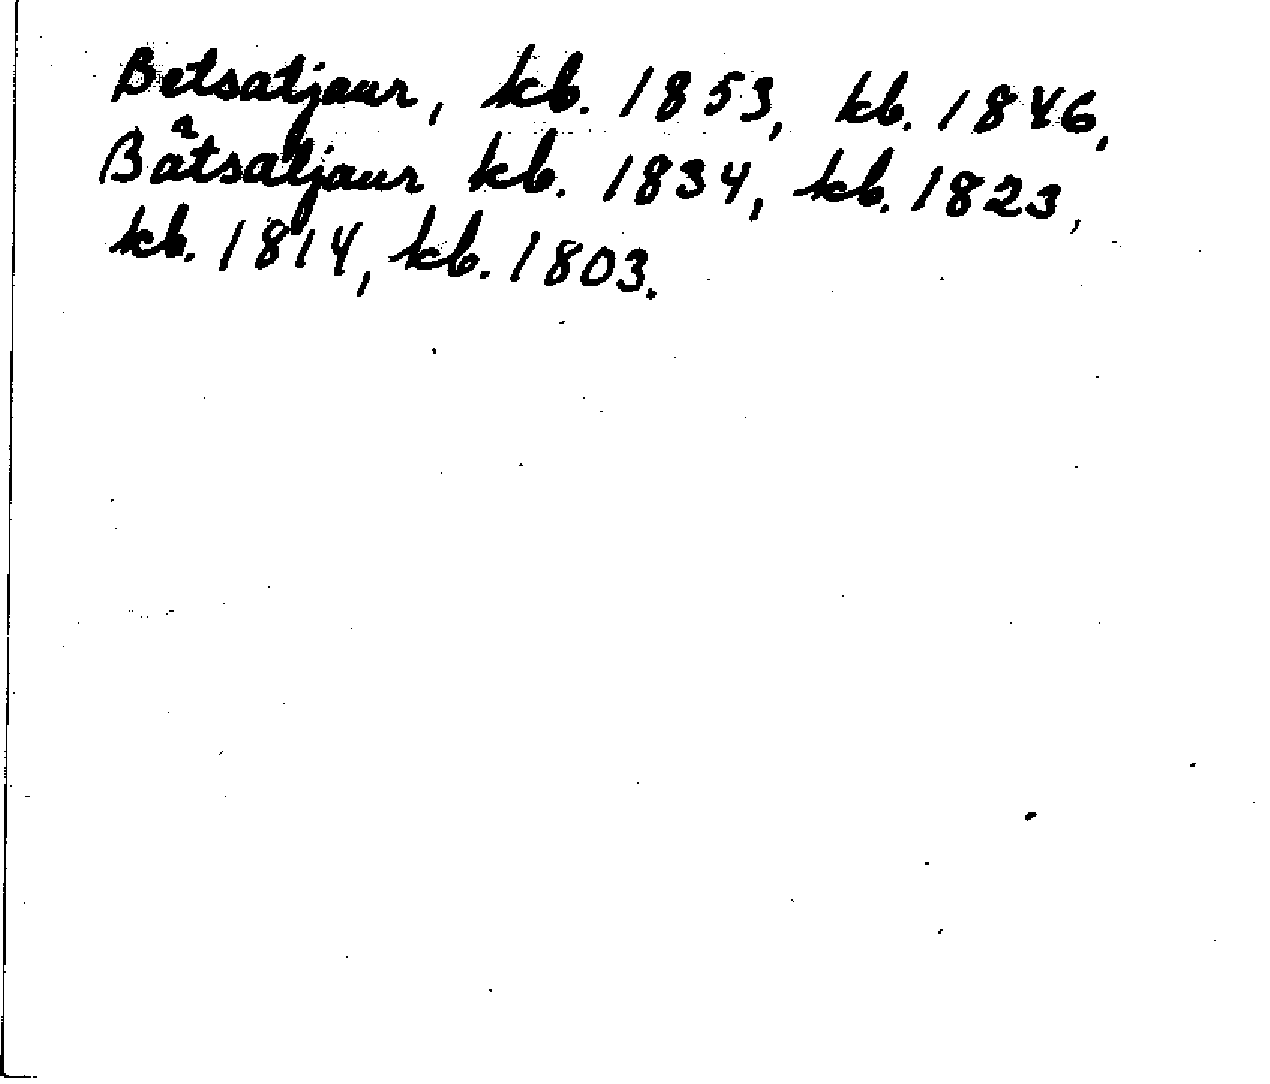 Betsatjaur, kb. 1853, kb. 1846,
Båtsatjaur kb. 1834, kb. 1823,
kb. 1814, kb. 1803.